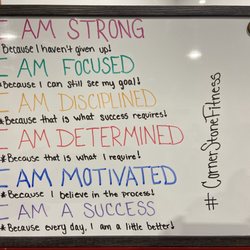 I AM STRONG
Because I haven't given up!
I AM FOCUSED
Because I can still see my goal!
I AM DISCIPLINED
*Because that is what success requires!
I AM DETERMINED
*Because that is what I require!
I AM MOTIVATED
*Because I believe in the process!
I AM A SUCCESS
*Because every day, I am a little better!
#CornerStoneFitness